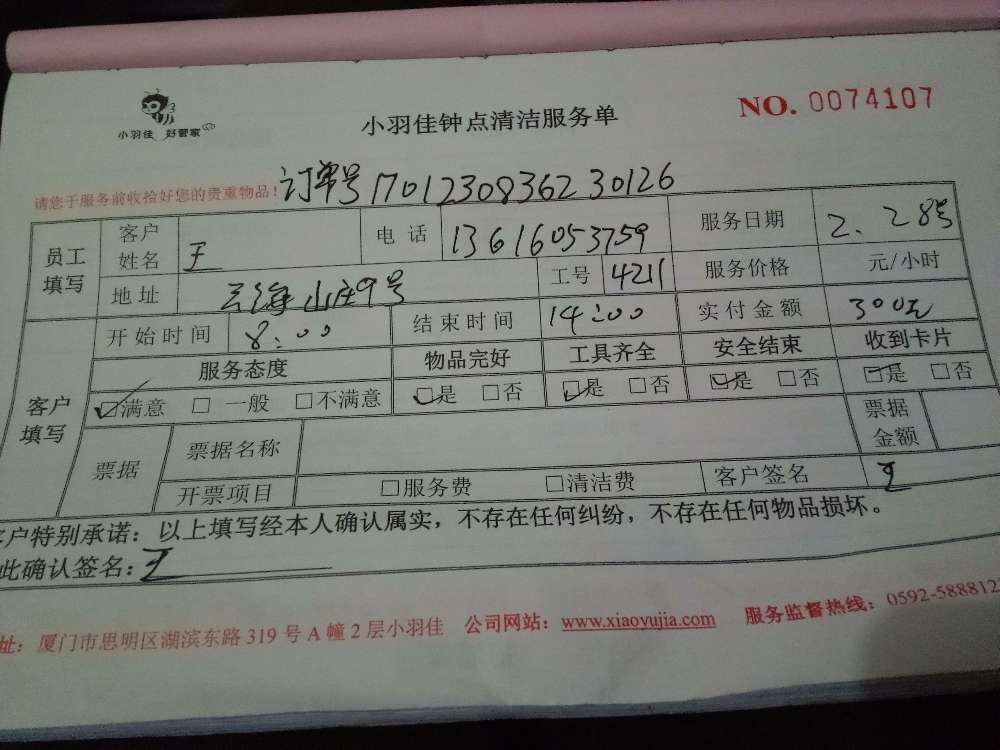 小羽佳 好管家
小羽佳钟点清洁服务单
NO. 0074107
请您于服务前收拾好您的贵重物品!
订单号 17012308362 30126
员工填写 客户姓名 王 电话 13616053759 服务日期 2、28号
地址 云海山庄9号 工号 4211 服务价格 元/小时
客户填写 开始时间 8:00 结束时间 14:00 实付金额 300元
服务态度 物品完好 工具齐全 安全结束 收到卡片
☑满意 □一般 □不满意 ☑是 □否 ☑是 □否 ☑是 □否 ☑是 □否
票据 票据名称 票据金额
开票项目 □服务费 □清洁费 客户签名 王
客户特别承诺：以上填写经本人确认属实，不存在任何纠纷，不存在任何物品损坏。
此确认签名：王
址：厦门市思明区湖滨东路 319 号 A 幢 2 层小羽佳 公司网站：www.xiaoyujia.com 服务监督热线：0592-588812